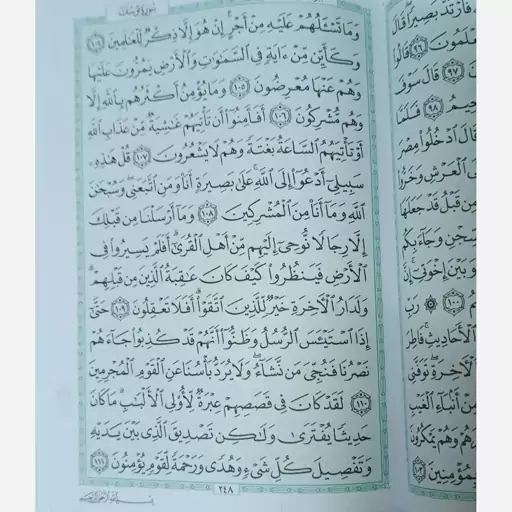 سورة يوسف
وَمَا تَسْـَٔلُهُمْ عَلَيْهِ مِنْ أَجْرٍ ۚ إِنْ هُوَ إِلَّا ذِكْرٌ لِّلْعَٰلَمِينَ ١٠٤
وَكَأَيِّن مِّنْ ءَايَةٍ فِى ٱلسَّمَٰوَٰتِ وَٱلْأَرْضِ يَمُرُّونَ عَلَيْهَا
وَهُمْ عَنْهَا مُعْرِضُونَ ١٠٥ وَمَا يُؤْمِنُ أَكْثَرُهُم بِٱللَّهِ إِلَّا
وَهُم مُّشْرِكُونَ ١٠٦ أَفَأَمِنُوٓا۟ أَن تَأْتِيَهُمْ غَٰشِيَةٌ مِّنْ عَذَابِ ٱللَّهِ
أَوْ تَأْتِيَهُمُ ٱلسَّاعَةُ بَغْتَةً وَهُمْ لَا يَشْعُرُونَ ١٠٧ قُلْ هَٰذِهِۦ
سَبِيلِىٓ أَدْعُوٓا۟ إِلَى ٱللَّهِ ۚ عَلَىٰ بَصِيرَةٍ أَنَا۠ وَمَنِ ٱتَّبَعَنِى ۖ وَسُبْحَٰنَ
ٱللَّهِ وَمَآ أَنَا۠ مِنَ ٱلْمُشْرِكِينَ ١٠٨ وَمَآ أَرْسَلْنَا مِن قَبْلِكَ
إِلَّا رِجَالًا نُّوحِىٓ إِلَيْهِم مِّنْ أَهْلِ ٱلْقُرَىٰٓ ۗ أَفَلَمْ يَسِيرُوا۟ فِى
ٱلْأَرْضِ فَيَنظُرُوا۟ كَيْفَ كَانَ عَٰقِبَةُ ٱلَّذِينَ مِن قَبْلِهِمْ ۗ
وَلَدَارُ ٱلْءَاخِرَةِ خَيْرٌ لِّلَّذِينَ ٱتَّقَوْا۟ ۗ أَفَلَا تَعْقِلُونَ ١٠٩ حَتَّىٰٓ
إِذَا ٱسْتَيْـَٔسَ ٱلرُّسُلُ وَظَنُّوٓا۟ أَنَّهُمْ قَدْ كُذِبُوا۟ جَآءَهُمْ
نَصْرُنَا فَنُجِّىَ مَن نَّشَآءُ ۖ وَلَا يُرَدُّ بَأْسُنَا عَنِ ٱلْقَوْمِ ٱلْمُجْرِمِينَ
١١٠ لَقَدْ كَانَ فِى قَصَصِهِمْ عِبْرَةٌ لِّأُو۟لِى ٱلْأَلْبَٰبِ ۗ مَا كَانَ
حَدِيثًا يُفْتَرَىٰ وَلَٰكِن تَصْدِيقَ ٱلَّذِى بَيْنَ يَدَيْهِ
وَتَفْصِيلَ كُلِّ شَىْءٍ وَهُدًى وَرَحْمَةً لِّقَوْمٍ يُؤْمِنُونَ ١١١
٢٤٨
بَصِيرًا ۖ قَالَ
٩٦ قَالُوا۟
٩٧ قَالَ سَوْفَ
٩٨ فَلَمَّا
قَالَ ٱدْخُلُوا۟ مِصْرَ
ٱلْعَرْشِ وَخَرُّوا۟
مِن قَبْلُ قَدْ جَعَلَهَا
وَجَآءَ بِكُم
وَبَيْنَ إِخْوَتِىٓ ۚ إِنَّ
١٠٠ رَبِّ
ٱلْأَحَادِيثِ ۚ فَاطِرَ
تَوَفَّنِى
مِنْ أَنۢبَآءِ ٱلْغَيْبِ
وَهُمْ يَمْكُرُونَ
بِمُؤْمِنِينَ ١٠٣